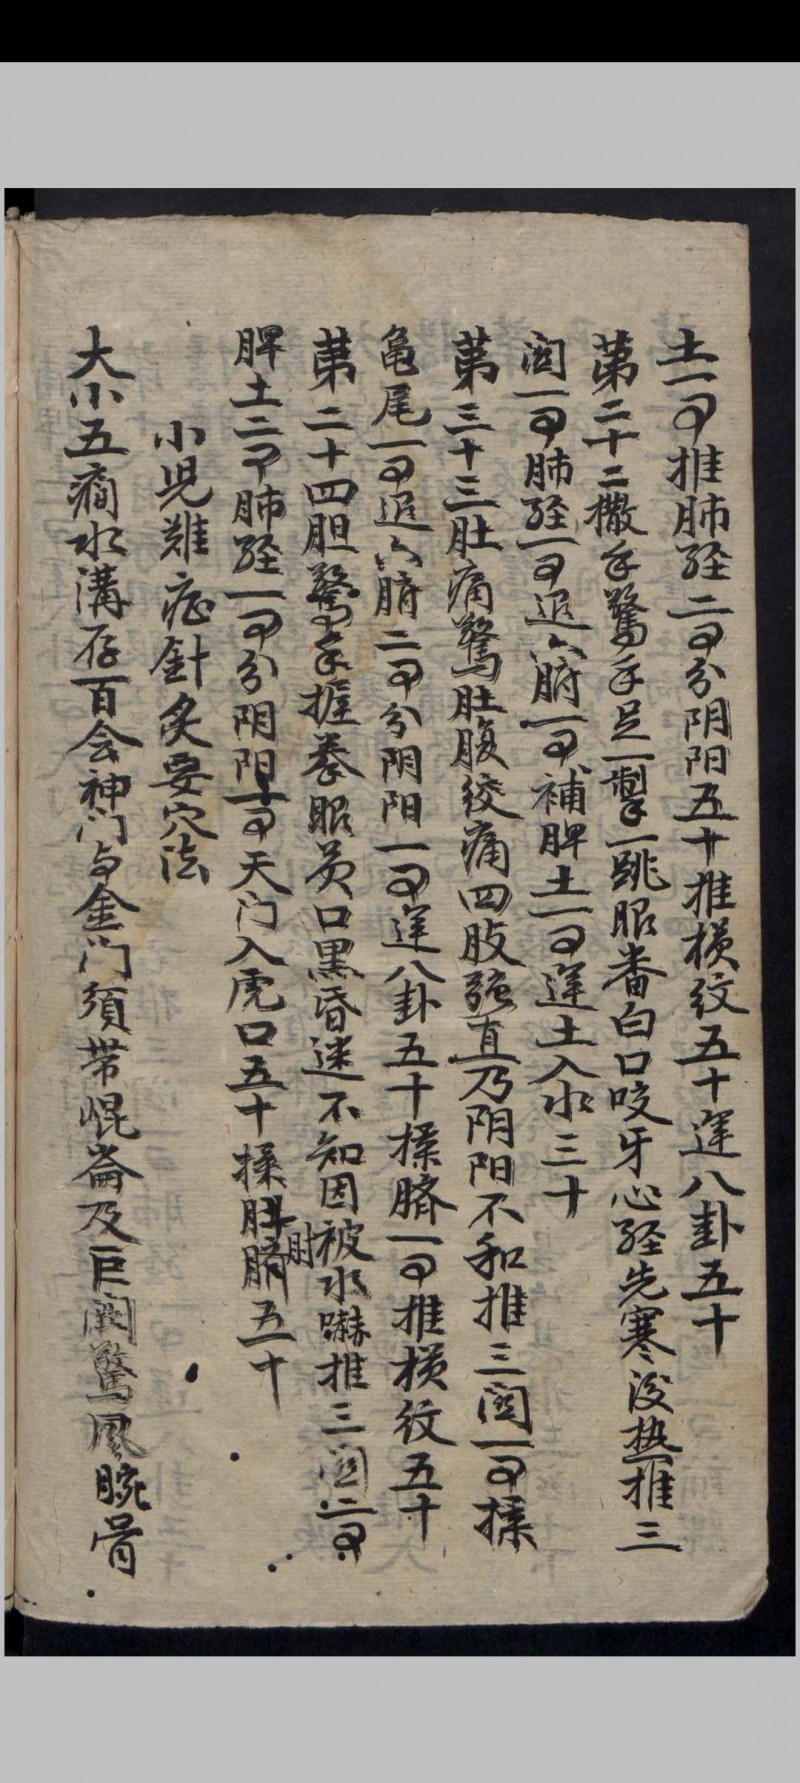 土一百推肺经二百分阴阳五十推横纹五十運八卦五十
第二十二撒手驚手足一掣一跳眼番白口咬牙心经先寒後热推三
関一百肺经一百退六腑一百補脾土一百運土入水三十
第三十三肚痛驚肚腹绞痛四肢强直乃阴阳不和推三関一百揉
龟尾一百退六腑二百分阴阳一百運八卦五十揉臍一百推横纹五十
第二十四胆驚手握拳眼黄口黑昏迷不知因被水嚇推三関二百
脾土二百肺经一百分阴阳一百天门入虎口五十揉肘臍五十
小児雜症針灸要穴法
大小五癎水溝存百会神门与金门須带崐崙及巨阙驚風腕骨